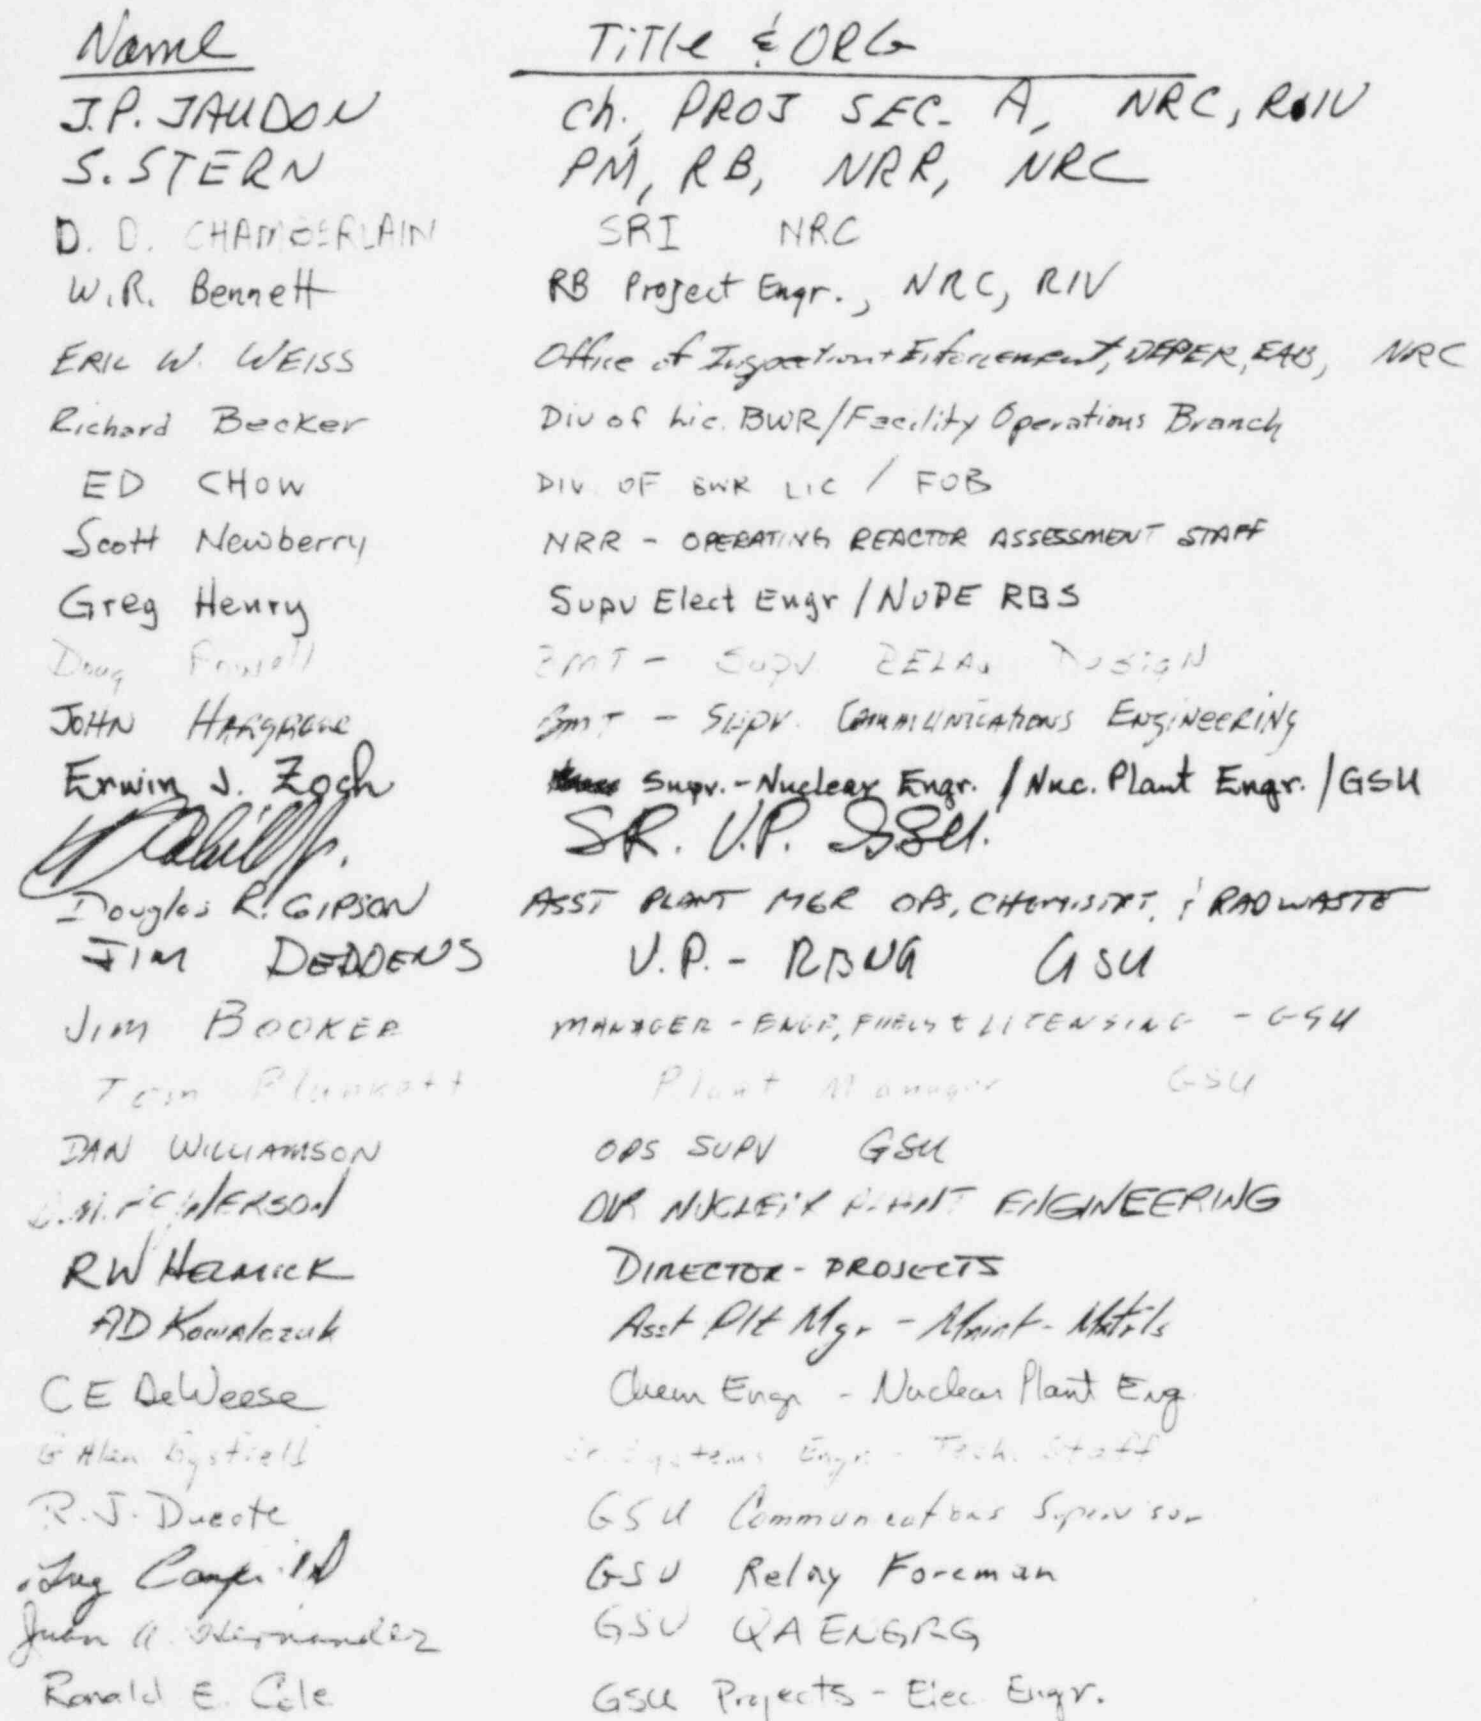 Name Title & ORG
J.P. JAUDON Ch., PROJ SEC. A, NRC, RIV
S. STERN PM, RB, NRR, NRC
D. D. CHAMBERLAIN SRI NRC
W.R. Bennett RB Project Engr., NRC, RIV
ERIC W. WEISS Office of Inspection + Enforcement, DEPER, EAB, NRC
Richard Becker Div of Lic. BWR/Facility Operations Branch
ED CHOW DIV. OF BWR LIC / FOB
Scott Newberry NRR - OPERATING REACTOR ASSESSMENT STAFF
Greg Henry Supv Elect Engr / NUPE RBS
Doug - Supv RELAY DESIGN
JOHN HARGROVE BMT - SUPV. COMMUNICATIONS ENGINEERING
Erwin J. Zoch Supv. - Nuclear Engr. / Nuc. Plant Engr. / GSU
Cahill Jr. SR. V.P. GSU.
Douglas R. GIPSON ASST PLANT MGR OPS, CHEMISTRY, & RADWASTE
JIM DEDDENS V.P. - RBNG GSU
JIM BOOKER MANAGER - ENGR, FUELS & LICENSING - GSU
Tom Plunkett Plant Manager GSU
DAN WILLIAMSON OPS SUPV GSU
DIR NUCLEAR PLANT ENGINEERING
RW HELMICK DIRECTOR - PROJECTS
AD Kowalczuk Asst Plt Mgr - Maint - Matrls
CE DeWeese Chem Engr - Nuclear Plant Eng.
G Alan Sr. Systems Engr - Tech. Staff
R. J. Ducote GSU Communications Supervisor
GSU Relay Foreman
Juan A. Hernandez GSU QA ENGRG
Ronald E. Cole GSU Projects - Elec. Engr.